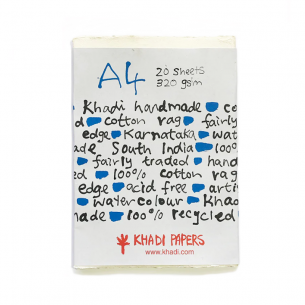 A4 20 sheets
320 gsm
Khadi handmade co
d cotton rag fairly
edge Karnataka wat
made South India 100%
fairly traded hand
d 100% cotton rag
edge acid free arti
watercolour Khad
made 100% recycled
KHADI PAPERS
www.khadi.com